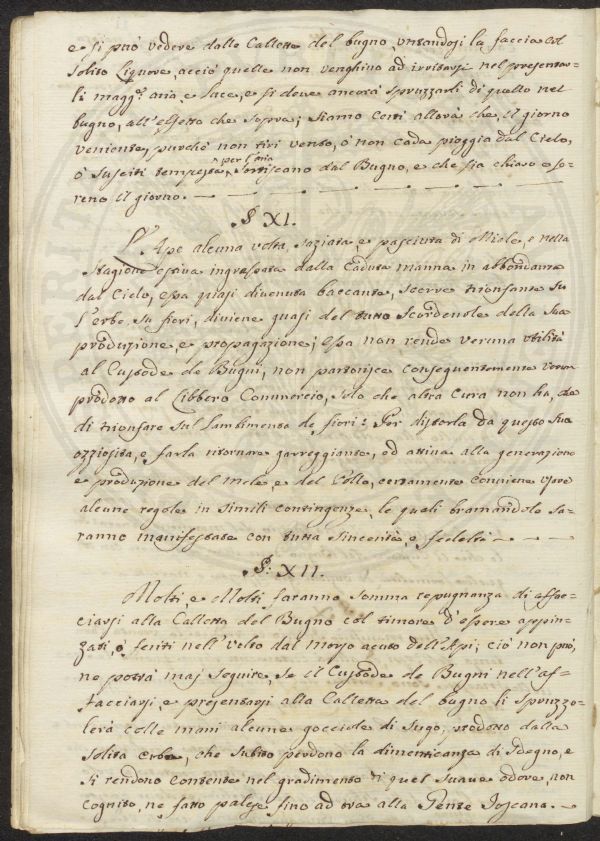 e si può vedere dalle Callette del bugno, untandosi la faccia col
solito liquore, acciò quelle non venghino ad irritarsi nel presentar-
li magg.e aria, e luce, e si deve ancora spruzzarli di quello nel
bugno, all'effetto che sopra; siamo certi allora che, il giorno
veniente, purché non tiri vento, ò non cada pioggia dal Cielo,
ò susciti tempesta, per l'aria sortiscano dal Bugno, e che sia chiaro e se-
reno il giorno.
§ XI.
L'Ape alcuna volta, saziata, e pasciuta di Miele, e nella
stagione estiva ingrassata dalla Caduta manna in abbondanza
dal Cielo, essa quasi divenuta baccante, scorre trionfante su
l'erbe, su fiori, diviene quasi del tutto scordevole della sua
produzione, e propagazione; essa non rende veruna utilità
al Custode de Bugni, non partorisce conseguentemente verun
prodotto al Libbero Commercio, solo che altra cura non ha, che
di trionfare sul lambimento de, fiori: Per distorla da questo suo
ozziosità, e farla ritornare garreggiante, ed attiva alla generazione
e produzione del mele, e del Còllo, certamente conviene
alcune regole in simili contingenze, le quali bramandole sa-
ranno manifestate con tutta sincerità, e fedeltà
§: XII.
Molti, e Molti faranno somma repugnanza di affac-
ciarsi alla Calletta del Bugno col timore d'essere appin-
zati, o feriti nell'volto dal morso acuto dell'Api; ciò non però,
ne potrà maj seguire, se il Custode de Bugni nell'af-
facciarsi, e presentarsi alla Calletta del bugno li spruzzo-
lerà colle mani alcune gocciole di sugo, prodotto dalla
solita erba, che subito perdono la dimenticanza di sdegno, e
si rendono contente nel gradimento di quel suave odore, non
cognito, ne fatto palese fino ad ora alla Gente Toscana.